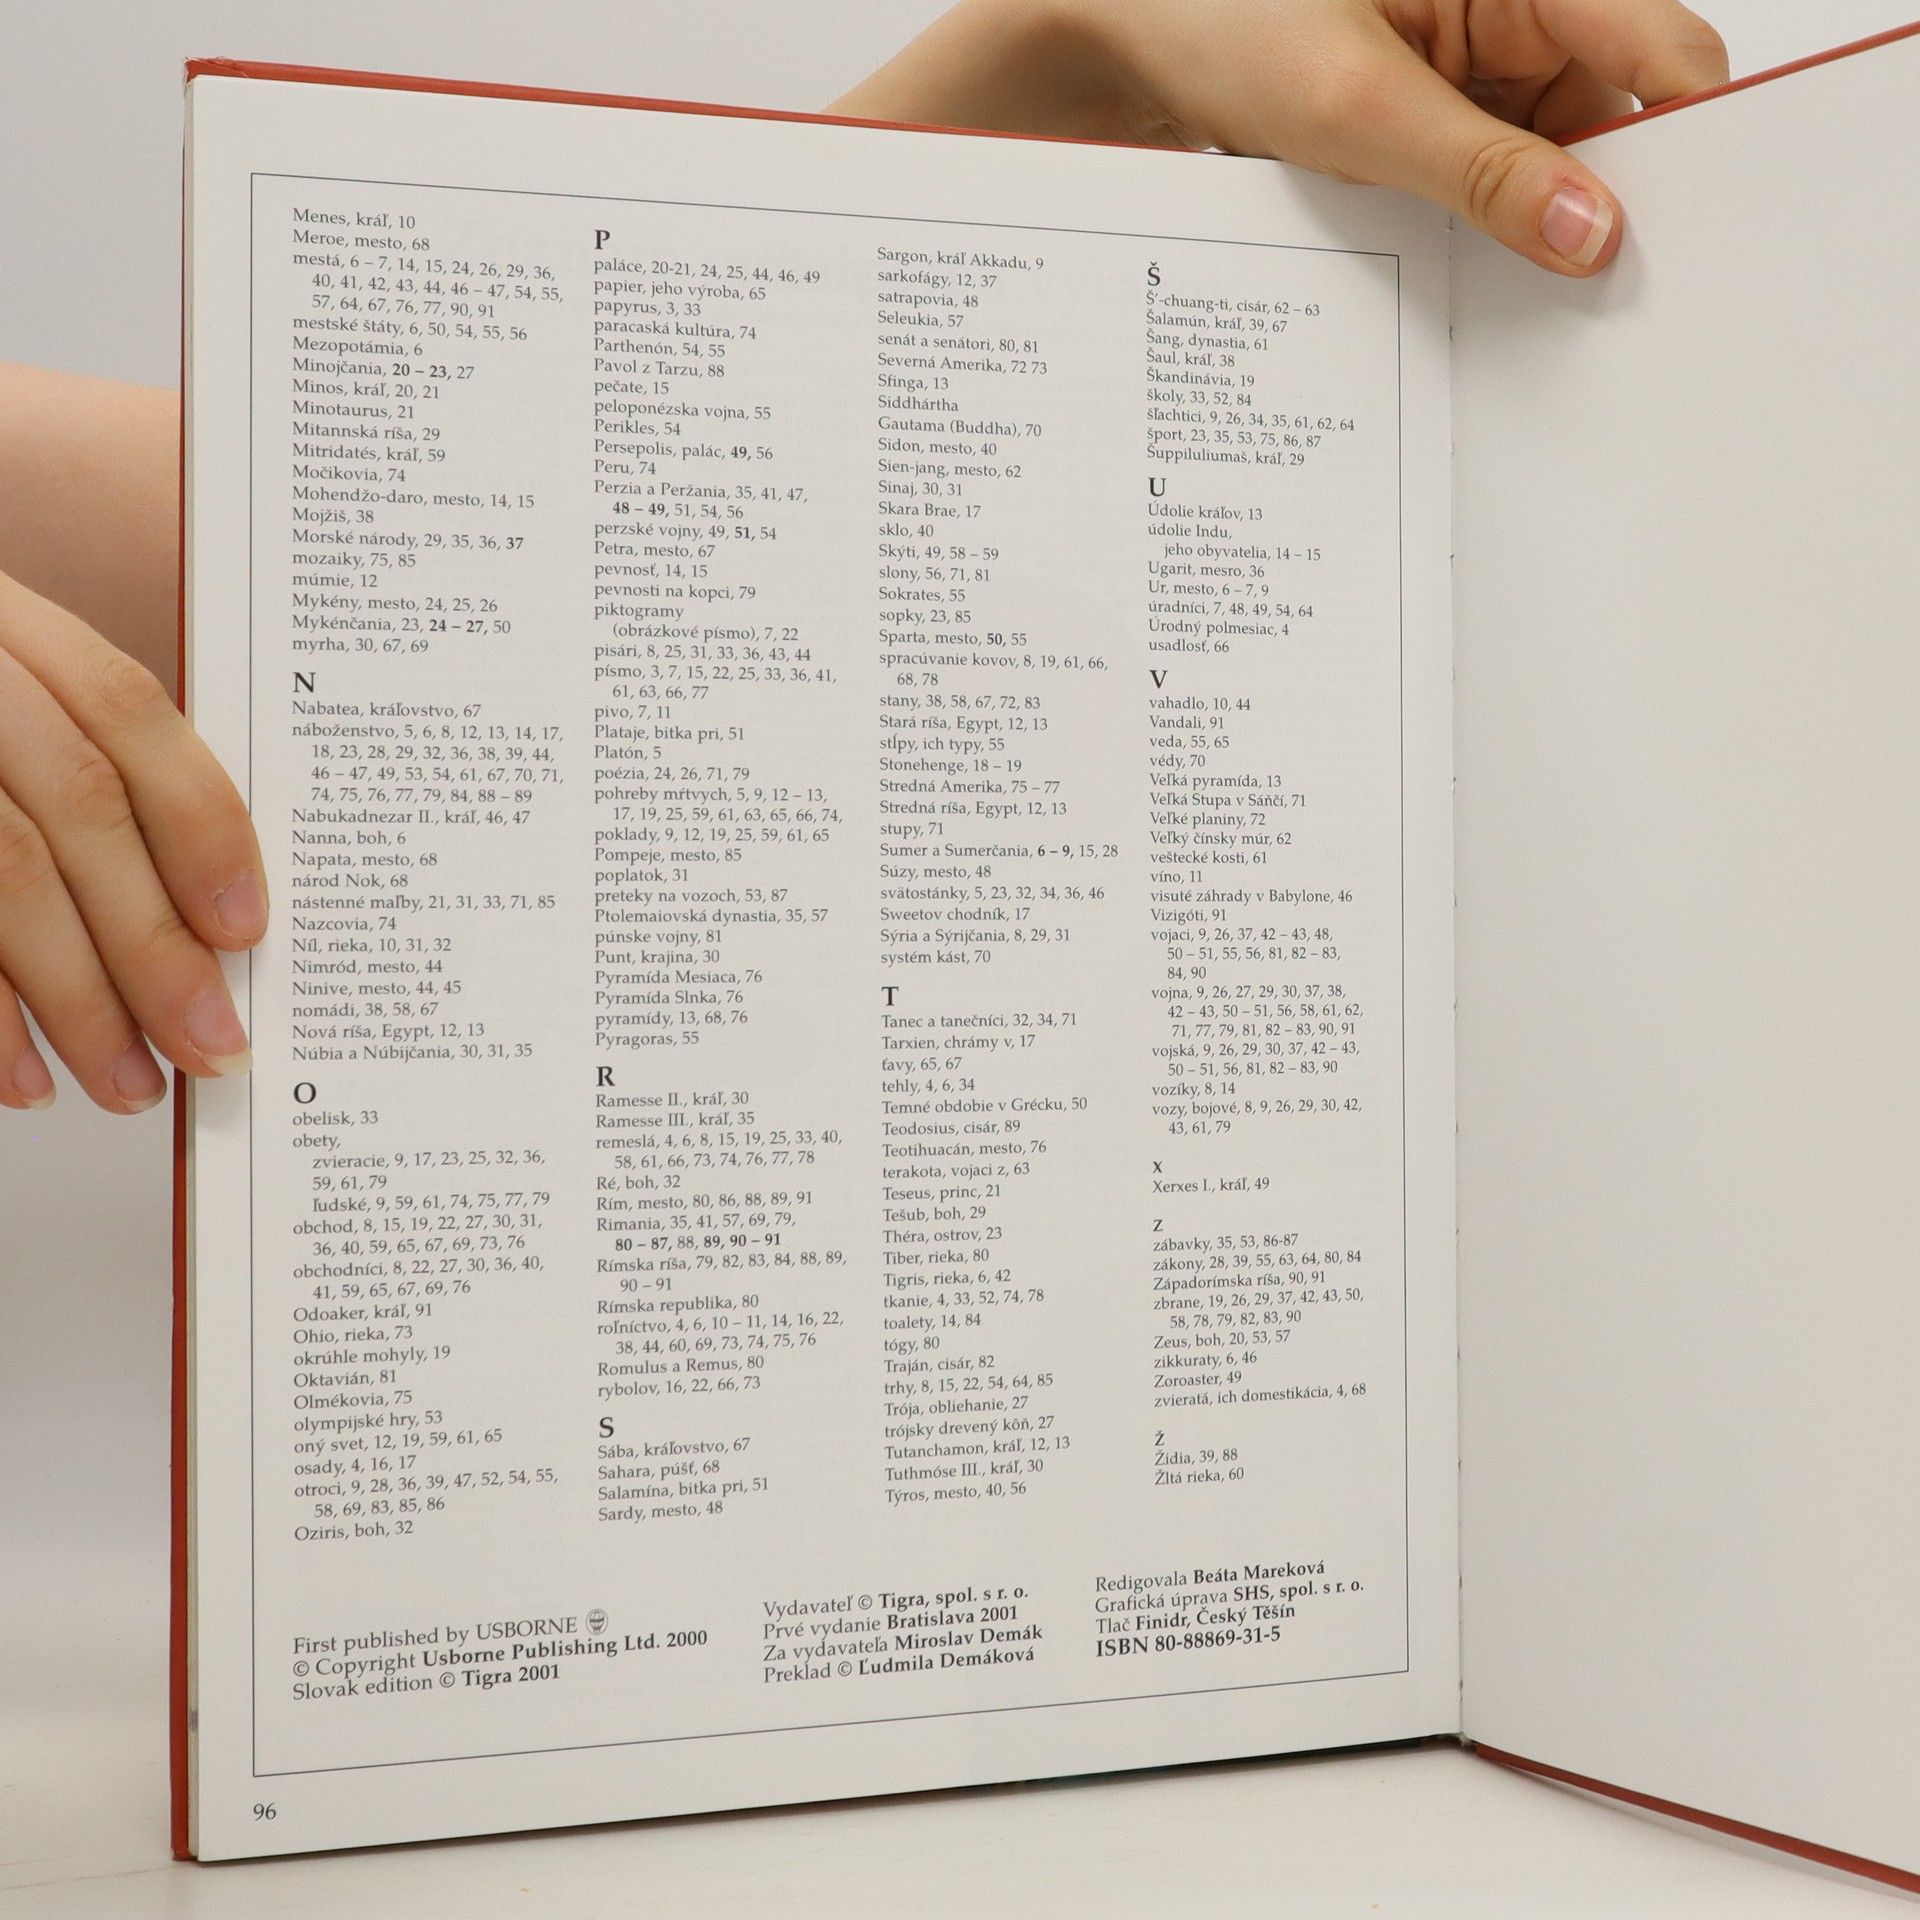 Menes, kráľ, 10
Meroe, mesto, 68
mestá, 6 – 7, 14, 15, 24, 26, 29, 36,
40, 41, 42, 43, 44, 46 – 47, 54, 55,
57, 64, 67, 76, 77, 90, 91
mestské štáty, 6, 50, 54, 55, 56
Mezopotámia, 6
Minojčania, 20 – 23, 27
Minos, kráľ, 20, 21
Minotaurus, 21
Mitannská ríša, 29
Mitridatés, kráľ, 59
Močikovia, 74
Mohendžo-daro, mesto, 14, 15
Mojžiš, 38
Morské národy, 29, 35, 36, 37
mozaiky, 75, 85
múmie, 12
Mykény, mesto, 24, 25, 26
Mykénčania, 23, 24 – 27, 50
myrha, 30, 67, 69
N
Nabatea, kráľovstvo, 67
náboženstvo, 5, 6, 8, 12, 13, 14, 17,
18, 23, 28, 29, 32, 36, 38, 39, 44,
46 – 47, 49, 53, 54, 61, 67, 70, 71,
74, 75, 76, 77, 79, 84, 88 – 89
Nabukadnezar II., kráľ, 46, 47
Nanna, boh, 6
Napata, mesto, 68
národ Nok, 68
nástenné maľby, 21, 31, 33, 71, 85
Nazcovia, 74
Níl, rieka, 10, 31, 32
Nimród, mesto, 44
Ninive, mesto, 44, 45
nomádi, 38, 58, 67
Nová ríša, Egypt, 12, 13
Núbia a Núbijčania, 30, 31, 35
O
obelisk, 33
obety,
zvieracie, 9, 17, 23, 25, 32, 36,
59, 61, 79
ľudské, 9, 59, 61, 74, 75, 77, 79
obchod, 8, 15, 19, 22, 27, 30, 31,
36, 40, 59, 65, 67, 69, 73, 76
obchodníci, 8, 22, 27, 30, 36, 40,
41, 59, 65, 67, 69, 76
Odoaker, kráľ, 91
Ohio, rieka, 73
okrúhle mohyly, 19
Oktavián, 81
Olmékovia, 75
olympijské hry, 53
oný svet, 12, 19, 59, 61, 65
osady, 4, 16, 17
otroci, 9, 28, 36, 39, 47, 52, 54, 55,
58, 69, 83, 85, 86
Oziris, boh, 32
P
paláce, 20-21, 24, 25, 44, 46, 49
papier, jeho výroba, 65
papyrus, 3, 33
paracaská kultúra, 74
Parthenón, 54, 55
Pavol z Tarzu, 88
pečate, 15
peloponézska vojna, 55
Perikles, 54
Persepolis, palác, 49, 56
Peru, 74
Perzia a Peržania, 35, 41, 47,
48 – 49, 51, 54, 56
perzské vojny, 49, 51, 54
Petra, mesto, 67
pevnosť, 14, 15
pevnosti na kopci, 79
piktogramy
(obrázkové písmo), 7, 22
pisári, 8, 25, 31, 33, 36, 43, 44
písmo, 3, 7, 15, 22, 25, 33, 36, 41,
61, 63, 66, 77
pivo, 7, 11
Plataje, bitka pri, 51
Platón, 5
poézia, 24, 26, 71, 79
pohreby mŕtvych, 5, 9, 12 – 13,
17, 19, 25, 59, 61, 63, 65, 66, 74,
poklady, 9, 12, 19, 25, 59, 61, 65
Pompeje, mesto, 85
poplatok, 31
preteky na vozoch, 53, 87
Ptolemaiovská dynastia, 35, 57
púnske vojny, 81
Punt, krajina, 30
Pyramída Mesiaca, 76
Pyramída Slnka, 76
pyramídy, 13, 68, 76
Pyragoras, 55
R
Ramesse II., kráľ, 30
Ramesse III., kráľ, 35
remeslá, 4, 6, 8, 15, 19, 25, 33, 40,
58, 61, 66, 73, 74, 76, 77, 78
Ré, boh, 32
Rím, mesto, 80, 86, 88, 89, 91
Rimania, 35, 41, 57, 69, 79,
80 – 87, 88, 89, 90 – 91
Rímska ríša, 79, 82, 83, 84, 88, 89,
90 – 91
Rímska republika, 80
roľníctvo, 4, 6, 10 – 11, 14, 16, 22,
38, 44, 60, 69, 73, 74, 75, 76
Romulus a Remus, 80
rybolov, 16, 22, 66, 73
S
Sába, kráľovstvo, 67
Sahara, púšť, 68
Salamína, bitka pri, 51
Sardy, mesto, 48
Sargon, kráľ Akkadu, 9
sarkofágy, 12, 37
satrapovia, 48
Seleukia, 57
senát a senátori, 80, 81
Severná Amerika, 72 73
Sfinga, 13
Siddhártha
Gautama (Buddha), 70
Sidon, mesto, 40
Sien-jang, mesto, 62
Sinaj, 30, 31
Skara Brae, 17
sklo, 40
Skýti, 49, 58 – 59
slony, 56, 71, 81
Sokrates, 55
sopky, 23, 85
Sparta, mesto, 50, 55
spracúvanie kovov, 8, 19, 61, 66,
68, 78
stany, 38, 58, 67, 72, 83
Stará ríša, Egypt, 12, 13
stĺpy, ich typy, 55
Stonehenge, 18 – 19
Stredná Amerika, 75 – 77
Stredná ríša, Egypt, 12, 13
stupy, 71
Sumer a Sumerčania, 6 – 9, 15, 28
Súzy, mesto, 48
svätostánky, 5, 23, 32, 34, 36, 46
Sweetov chodník, 17
Sýria a Sýrijčania, 8, 29, 31
systém kást, 70
T
Tanec a tanečníci, 32, 34, 71
Tarxien, chrámy v, 17
ťavy, 65, 67
tehly, 4, 6, 34
Temné obdobie v Grécku, 50
Teodosius, cisár, 89
Teotihuacán, mesto, 76
terakota, vojaci z, 63
Teseus, princ, 21
Tešub, boh, 29
Théra, ostrov, 23
Tiber, rieka, 80
Tigris, rieka, 6, 42
tkanie, 4, 33, 52, 74, 78
toalety, 14, 84
tógy, 80
Traján, cisár, 82
trhy, 8, 15, 22, 54, 64, 85
Trója, obliehanie, 27
trójsky drevený kôň, 27
Tutanchamon, kráľ, 12, 13
Tuthmóse III., kráľ, 30
Týros, mesto, 40, 56
Š
Š'-chuang-ti, cisár, 62 – 63
Šalamún, kráľ, 39, 67
Šang, dynastia, 61
Šaul, kráľ, 38
Škandinávia, 19
školy, 33, 52, 84
šľachtici, 9, 26, 34, 35, 61, 62, 64
šport, 23, 35, 53, 75, 86, 87
Šuppiluliumaš, kráľ, 29
U
Údolie kráľov, 13
údolie Indu,
jeho obyvatelia, 14 – 15
Ugarit, mesro, 36
Ur, mesto, 6 – 7, 9
úradníci, 7, 48, 49, 54, 64
Úrodný polmesiac, 4
usadlosť, 66
V
vahadlo, 10, 44
Vandali, 91
veda, 55, 65
védy, 70
Veľká pyramída, 13
Veľká Stupa v Sáňčí, 71
Veľké planiny, 72
Veľký čínsky múr, 62
veštecké kosti, 61
víno, 11
visuté záhrady v Babylone, 46
Vizigóti, 91
vojaci, 9, 26, 37, 42 – 43, 48,
50 – 51, 55, 56, 81, 82 – 83,
84, 90
vojna, 9, 26, 27, 29, 30, 37, 38,
42 – 43, 50 – 51, 56, 58, 61, 62,
71, 77, 79, 81, 82 – 83, 90, 91
vojská, 9, 26, 29, 30, 37, 42 – 43,
50 – 51, 56, 81, 82 – 83, 90
vozíky, 8, 14
vozy, bojové, 8, 9, 26, 29, 30, 42,
43, 61, 79
X
Xerxes I., kráľ, 49
Z
zábavky, 35, 53, 86-87
zákony, 28, 39, 55, 63, 64, 80, 84
Západorímska ríša, 90, 91
zbrane, 19, 26, 29, 37, 42, 43, 50,
58, 78, 79, 82, 83, 90
Zeus, boh, 20, 53, 57
zikkuraty, 6, 46
Zoroaster, 49
zvieratá, ich domestikácia, 4, 68
Ž
Židia, 39, 88
Žltá rieka, 60
First published by USBORNE
© Copyright Usborne Publishing Ltd. 2000
Slovak edition © Tigra 2001
Vydavateľ © Tigra, spol. s r. o.
Prvé vydanie Bratislava 2001
Za vydavateľa Miroslav Demák
Preklad © Ľudmila Demáková
Redigovala Beáta Mareková
Grafická úprava SHS, spol. s r. o.
Tlač Finidr, Český Těšín
ISBN 80-88869-31-5
96